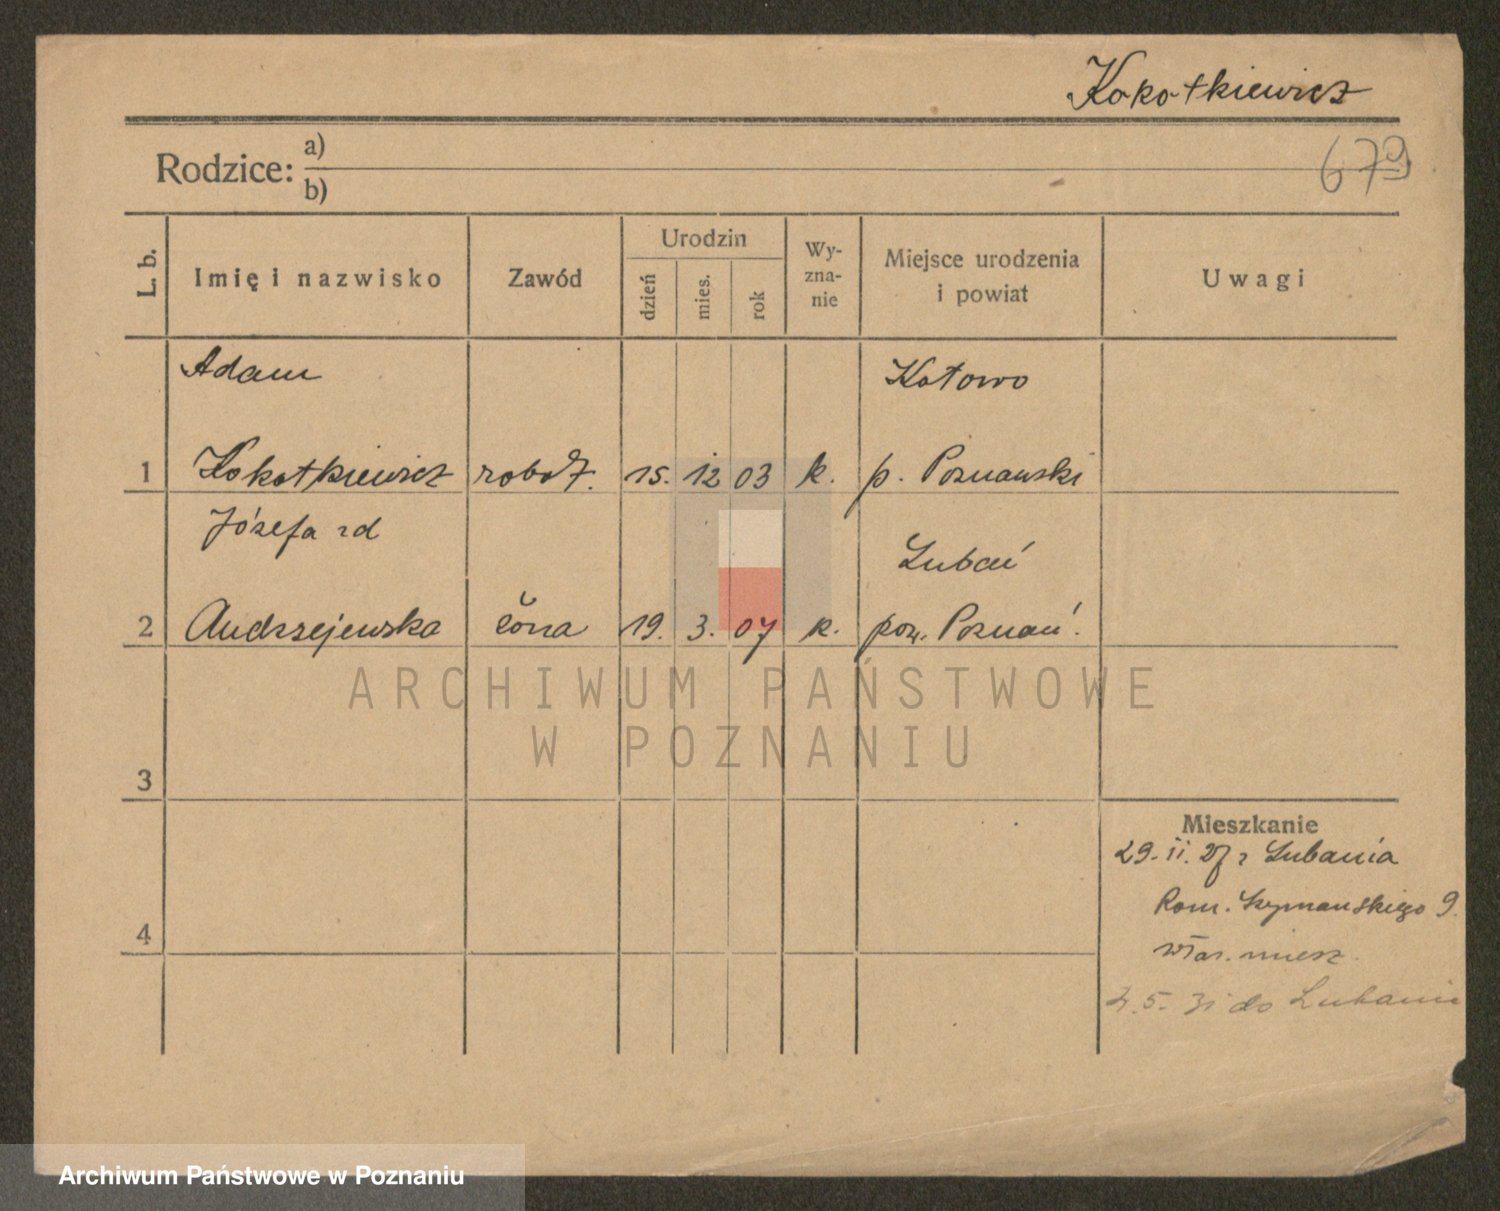 Kokotkiewicz
679
Rodzice: a)
b)
L. b. Imię i nazwisko Zawód Urodzin dzień mies. rok Wy-zna-nie Miejsce urodzenia i powiat Uwagi
Adam Kotowo
1 Kokotkiewicz robot. 15. 12 03 k. p. Poznanski
Józefa zd Lubań
2 Andrzejewska żona 19. 3. 07 k. pow. Poznań.
3
4
Mieszkanie
29. 11. 27 z Lubania
Rom. Szymańskiego 9.
włas. miesz.
5. 31 do Lubania
ARCHIWUM PAŃSTWOWE
W POZNANIU
Archiwum Państwowe w Poznaniu